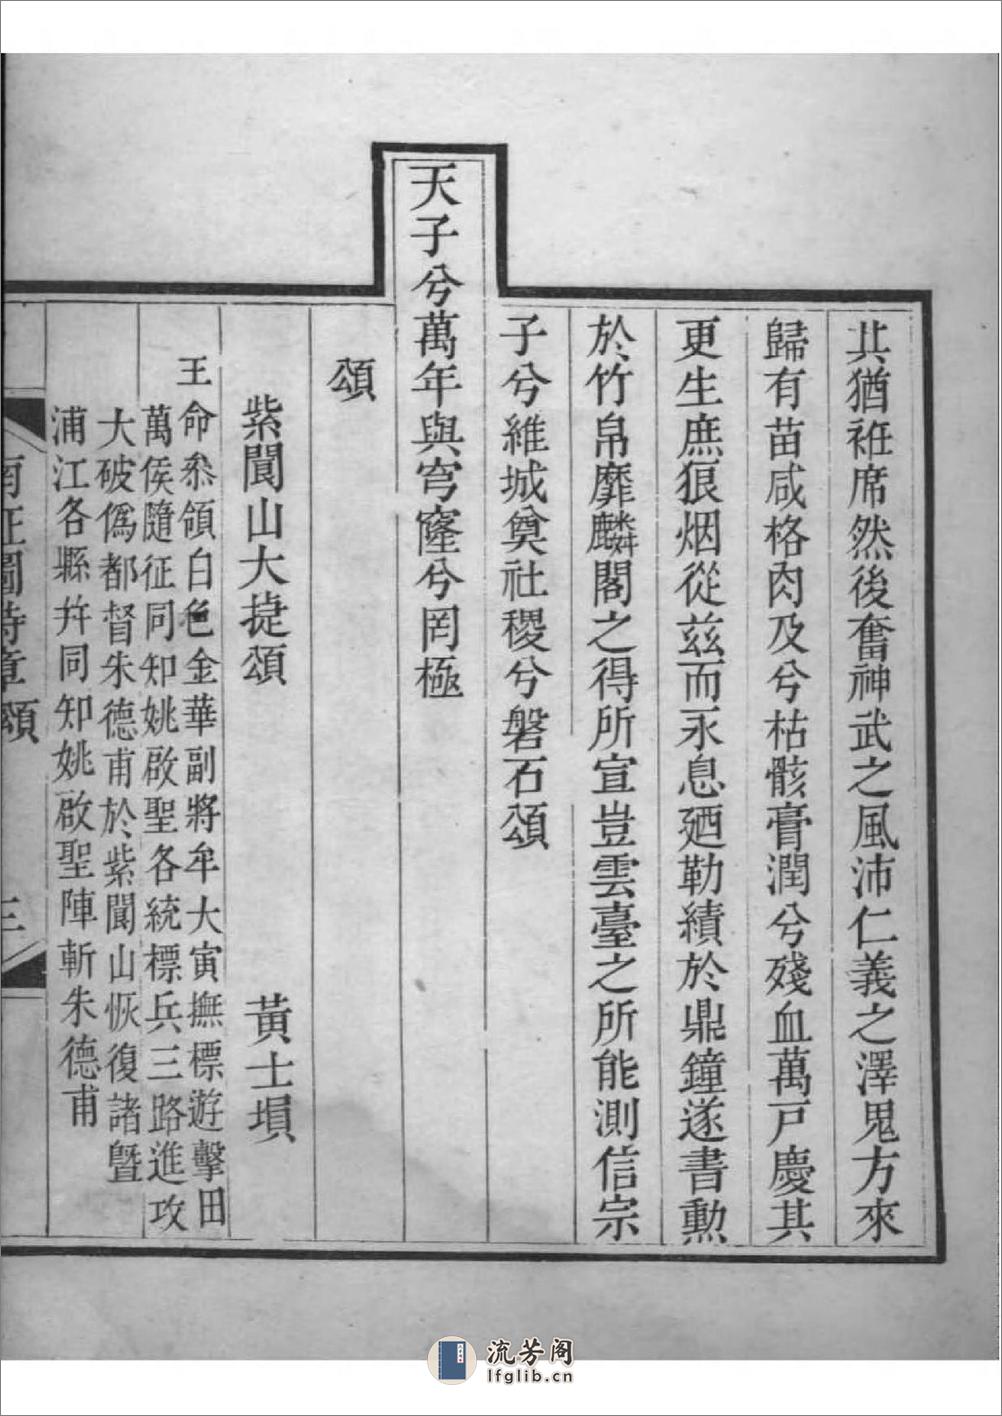 共猶袵席然後奮神武之風沛仁義之澤鬼方來
歸有苗咸格肉及兮枯骸膏潤兮殘血萬戶慶其
更生庶狼烟從茲而永息廼勒績於鼎鐘遂書勲
於竹帛靡麟閣之得所宣豈雲臺之所能測信宗
子兮維城奠社稷兮磐石頌
天子兮萬年與穹窿兮罔極
頌
紫閬山大捷頌　黃士塤
王命叅領白色金華副將牟大寅撫標遊擊田
萬侯隨征同知姚啟聖各統標兵三路進攻
大破僞都督朱德甫於紫閬山恢復諸曁
浦江各縣幷同知姚啟聖陣斬朱德甫
南征圖詩章 頌 三
流芳阁
lfglib.cn